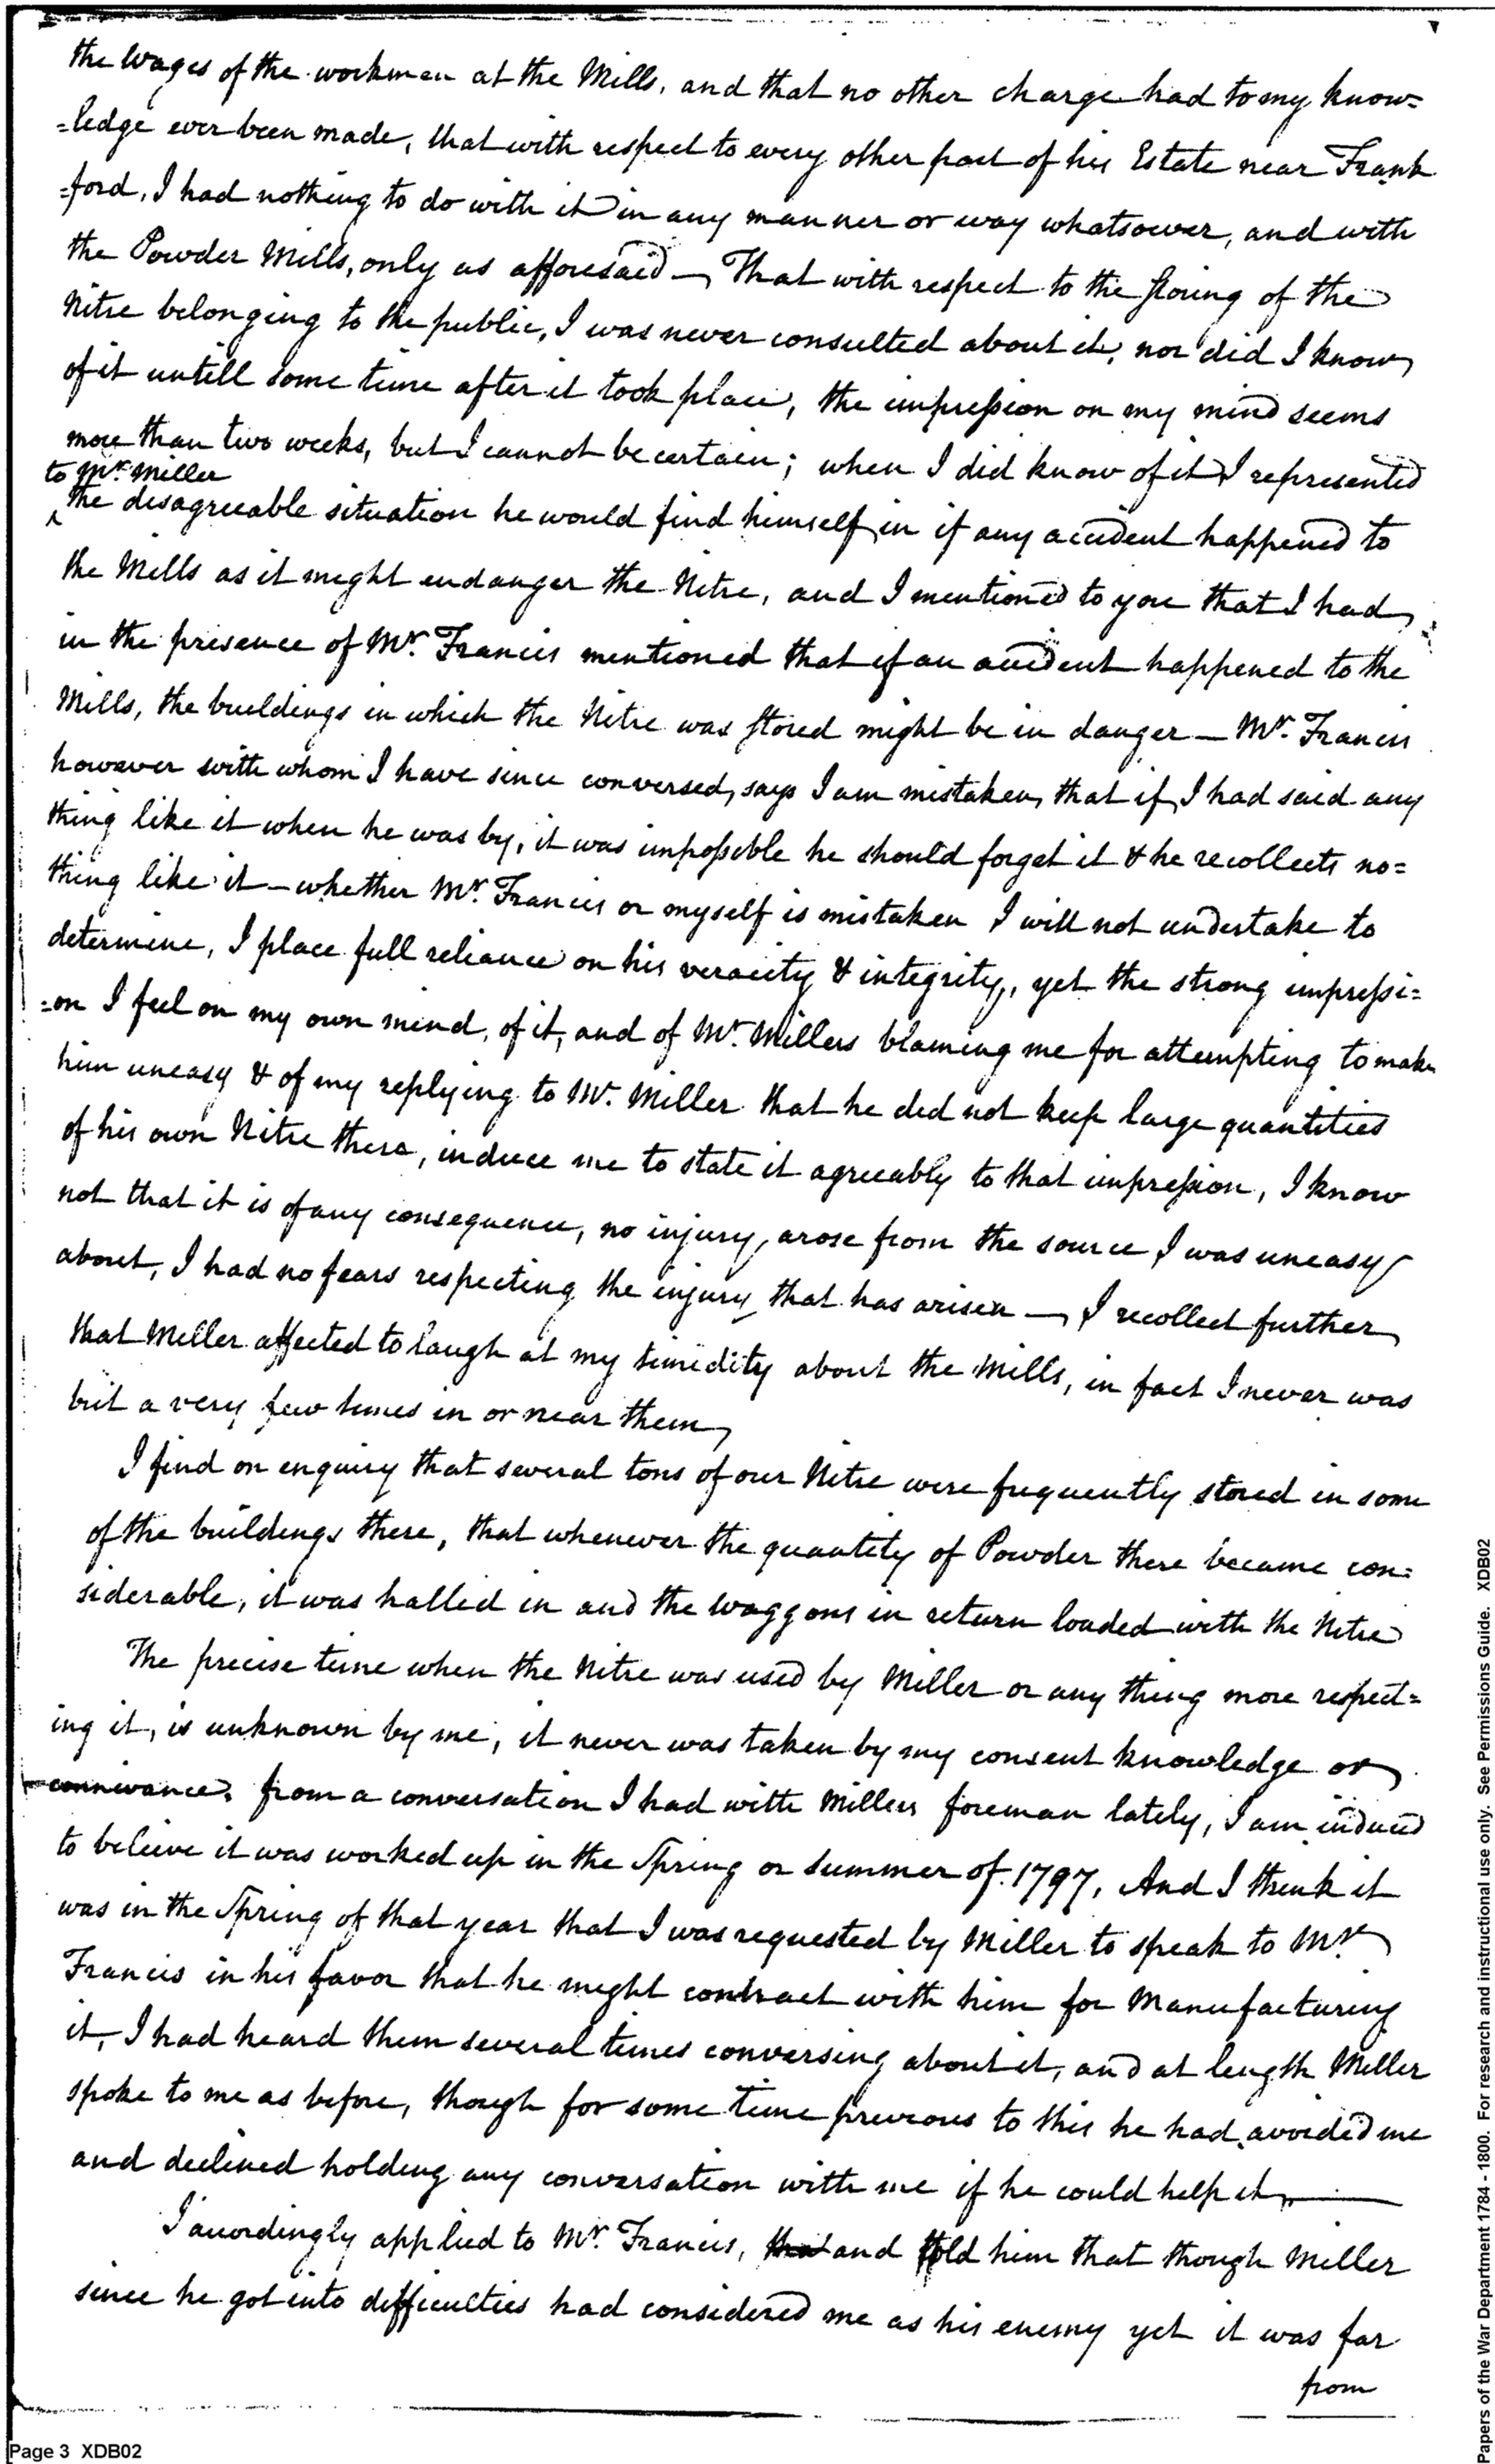 the Wages of the workmen at the Mills, and that no other charge had to my know=
=ledge ever been made, that with respect to every other part of his Estate near Frank
=ford, I had nothing to do with it in any manner or way whatsoever, and with
the Powder Mills, only as afforesaid — That with respect to the storing of the
Nitre belonging to the public, I was never consulted about it, nor did I know
of it untill some time after it took place, the impression on my mind seems
more than two weeks, but I cannot be certain; when I did know of it I represented
to Mr. Miller
the disagreeable situation he would find himself in if any accident happened to
the Mills as it might endanger the Nitre, and I mentioned to you that I had
in the presence of Mr. Francis mentioned that if an accident happened to the
Mills, the buildings in which the Nitre was stored might be in danger — Mr. Francis
however with whom I have since conversed, says I am mistaken, that if I had said any
thing like it when he was by, it was impossible he should forget it & he recollects no=
thing like it — whether Mr. Francis or myself is mistaken I will not undertake to
determine, I place full reliance on his veracity & integrity, yet the strong impressi=
=on I feel on my own mind, of it, and of Mr. Millers blaming me for attempting to make
him uneasy & of my replying to Mr. Miller that he did not keep large quantities
of his own Nitre there, induce me to state it agreeably to that impression, I know
not that it is of any consequence, no injury arose from the source I was uneasy
about, I had no fears respecting the injury that has arisen — I recollect further
that Miller affected to laugh at my timidity about the Mills, in fact I never was
but a very few times in or near them,
I find on enquiry that several tons of our Nitre were frequently stored in some
of the buildings there, that whenever the quantity of Powder there became con=
siderable, it was halled in and the waggons in return loaded with the Nitre
The precise time when the Nitre was used by Miller or any thing more respect=
ing it, is unknown by me, it never was taken by my consent knowledge or
connivance. from a conversation I had with Millers foreman lately, I am induced
to believe it was worked up in the Spring or Summer of 1797, And I think it
was in the Spring of that year that I was requested by Miller to speak to Mr.
Francis in his favor that he might contract with him for Manufacturing
it, I had heard them several times conversing about it, and at length Miller
spoke to me as before, though for some time previous to this he had avoided me
and declined holding any conversation with me if he could help it, —
I accordingly applied to Mr. Francis, that and told him that though Miller
since he got into difficulties had considered me as his enemy yet it was far
from
Page 3 XDB02
Papers of the War Department 1784 - 1800. For research and instructional use only. See Permissions Guide. XDB02